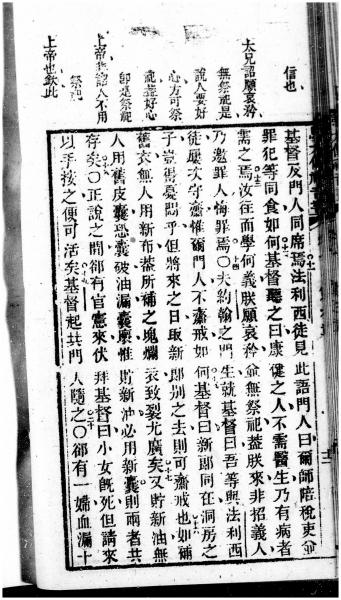 信也
太兄詔願哀矜
無祭祀是
說人要好
心方可祭
祀無好心
即是祭祀
人不用
祭祀
上帝也欽此
基督及門人同席焉法利西徒見此語門人曰爾師陪稅吏並
罪犯等同食如何基督聽之曰康健之人不需醫生乃有病者
需之焉汝往而學何義朕願哀矜並無祭祀蓋朕來非招義人
乃邀罪人悔罪焉○夫約翰之門生就基督曰吾等與法利西
徒屢次守齋惟爾門人不齋戒如何基督曰新郎同在洞房之
子豈得憂悶乎但將來之日取新郎別之去則可齋戒也如補
舊衣無人用新布蓋所補之塊爛衣致裂尤廣矣又貯新油無
人用舊皮囊恐囊破油漏囊壞惟貯新油必用新囊則兩者共
存矣○正說之間卻有官憲來伏拜基督曰小女既死但請來
以手按之便可活矣基督起共門人隨之○卻有一婦血漏十